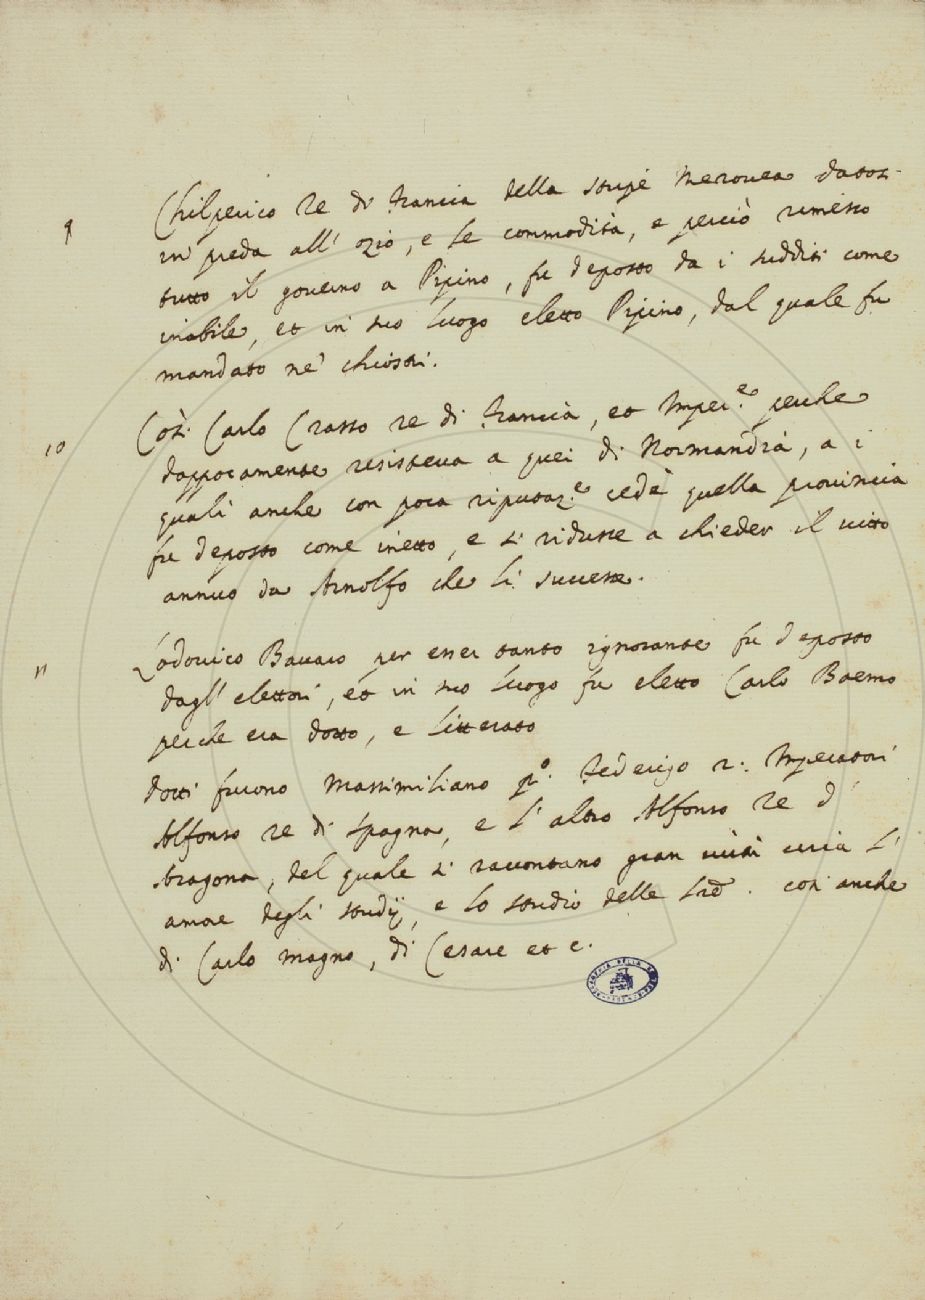 9 Chilperico Re di Francia della stirpe Merovea datosi
in preda all' ozio, e le commodità, e perciò rimesso
tutto il governo a Pipino, fu deposto da i sudditi come
inabile, et in suo luogo eletto Pipino, dal quale fu
mandato ne' chiostri.
10 Così Carlo Crasso re di Francia, et Imper.e perche
dappocamente resisteva a quei di Normandia, a i
quali anche con poca riputaz.e cedè quella provincia
fu deposto come inetto, e si ridusse a chieder il vitto
annuo da Arnolfo che li successe.
11 Lodovico Bavaro per esser tanto ignorante fu deposto
dagl' elettori, et in suo luogo fu eletto Carlo Boemo
perche era dotto, e litterato
dotti furono Massimiliano p.o Federigo 2: Imperatori
Alfonso re di Spagna, e l' altro Alfonso Re d'
Aragona, del quale si raccontano gran circa l'
amore degli studij, e lo studio delle . così anche
di Carlo magno, di Cesare et c.